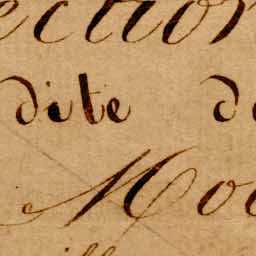 ection
dite de
Mo